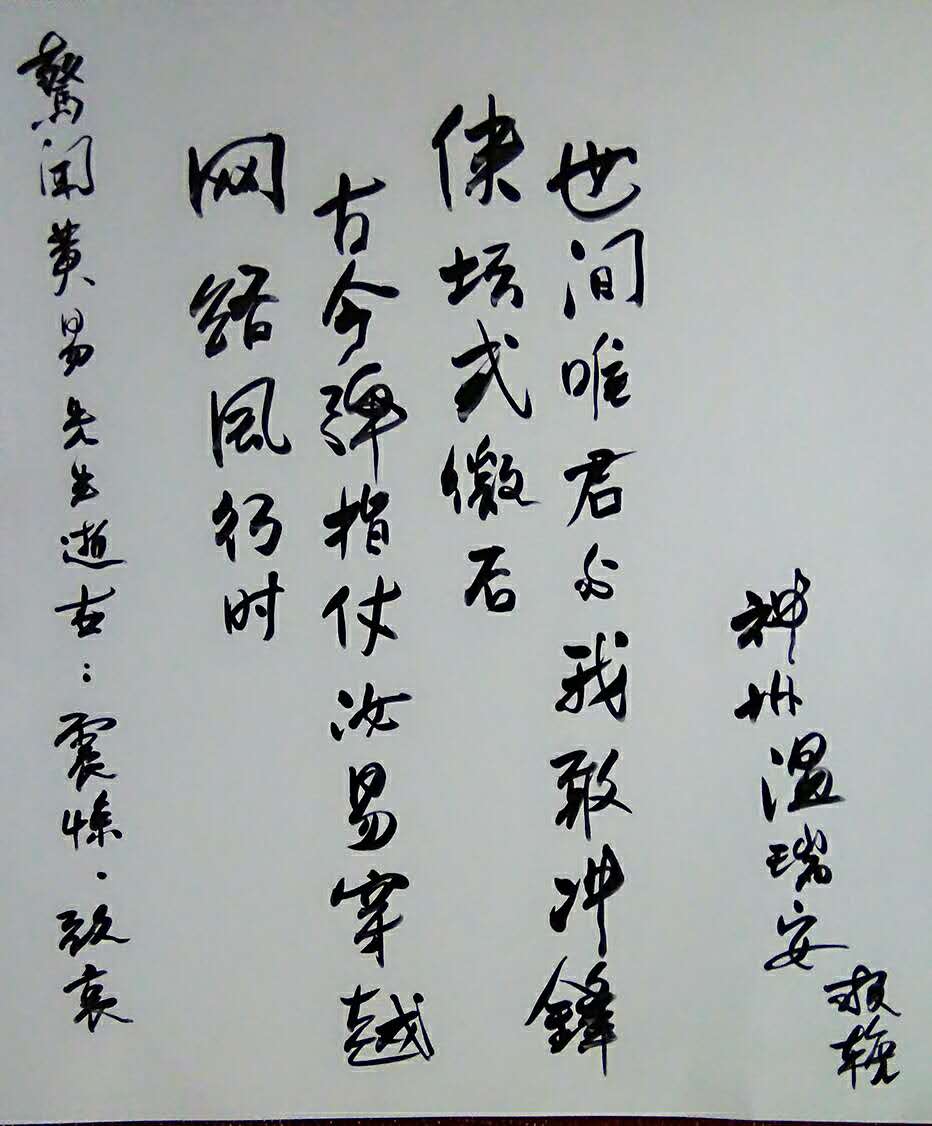 驚闻黄易先生逝去:震悼·致哀
网络風行时
古今弹指仗汝易穿越
侠坛式微后
世间唯君与我敢冲锋
神州温瑞安
敬輓